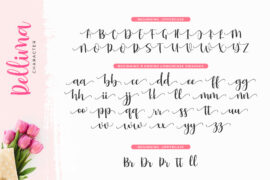 Dellima
CHARACTER
BEGINNING UPPERCASE
A B C D E F G H I J K L M
N O P Q R S T U V W X Y Z
BEGINNING & ENDING LOWERCASE SWASHES
aa bb cc dd ee ff gg
hh ii jj kk ll mm nn
oo pp qq rr ss tt uu
vv ww xx yy zz
Br Dr Dr tt ll